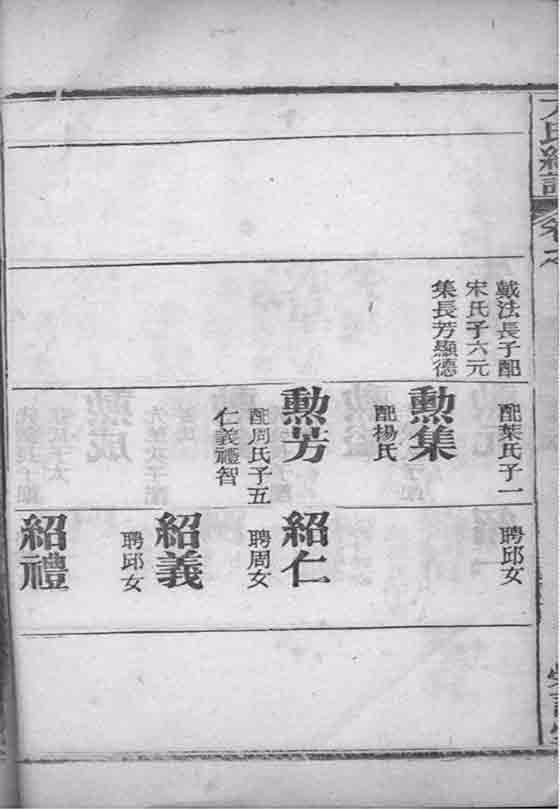 戴法長子配
宋氏子六元
集長芳顯德
配葉氏子一
勲集
配楊氏
勲芳
配周氏子五
仁義禮智
聘邱女
紹仁
聘周女
紹義
聘邱女
紹禮